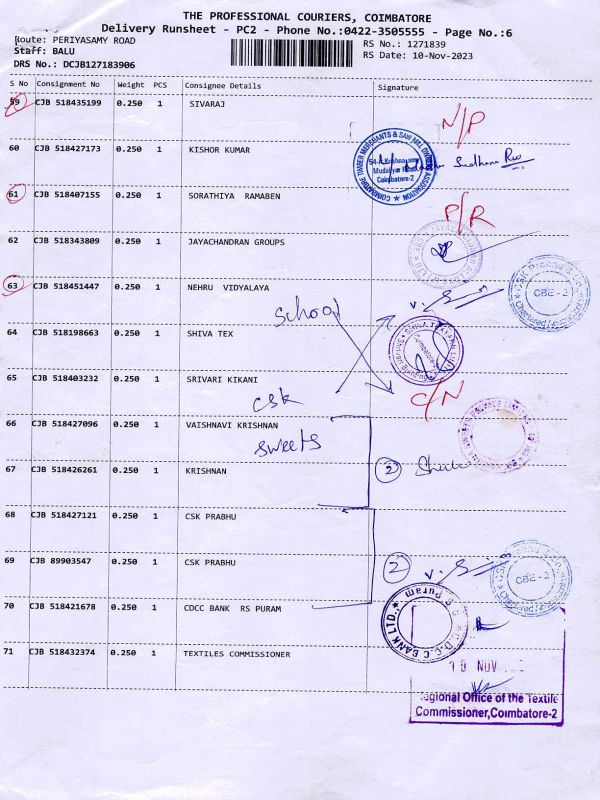 THE PROFESSIONAL COURIERS, COIMBATORE
Delivery Runsheet - PC2 - Phone No.:0422-3505555 - Page No.:6
Route: PERIYASAMY ROAD
RS No.: 1271839
Staff: BALU
RS Date: 10-Nov-2023
DRS No.: DCJB127183906
S No Consignment No Weight PCS Consignee Details Signature
59 CJB 518435199 0.250 1 SIVARAJ
N/P
60 CJB 518427173 0.250 1 KISHOR KUMAR
COIMBATORE TIMBER MERCHANTS & SAW MILL OWNERS ASSOCIATION
Mudaliyar Road,
Coimbatore-2
61 CJB 518407155 0.250 1 SORATHIYA RAMABEN
P/R
62 CJB 518343809 0.250 1 JAYACHANDRAN GROUPS
63 CJB 518451447 0.250 1 NEHRU VIDYALAYA
CBE - 2
school
64 CJB 518198663 0.250 1 SHIVA TEX
65 CJB 518403232 0.250 1 SRIVARI KIKANI
C/N
csk
66 CJB 518427096 0.250 1 VAISHNAVI KRISHNAN
sweets
67 CJB 518426261 0.250 1 KRISHNAN
2
68 CJB 518427121 0.250 1 CSK PRABHU
69 CJB 89903547 0.250 1 CSK PRABHU
2
CBE - 2
70 CJB 518421678 0.250 1 CDCC BANK RS PURAM
C.D.C.C BANK LTD.,
R S Puram
71 CJB 518432374 0.250 1 TEXTILES COMMISSIONER
10 NOV
Regional Office of the Textile
Commissioner,Coimbatore-2